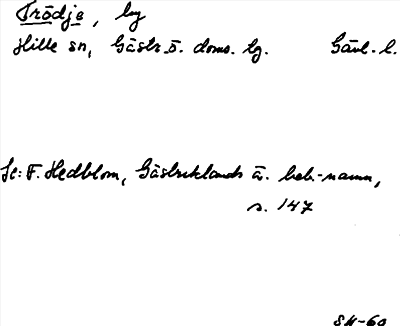 Trödje, by
Hille sn, Gästr. ö. doms. lg. Gävl. l.
Se: F. Hedblom, Gästriklands ä. beb.-namn,
s. 147
SH-60